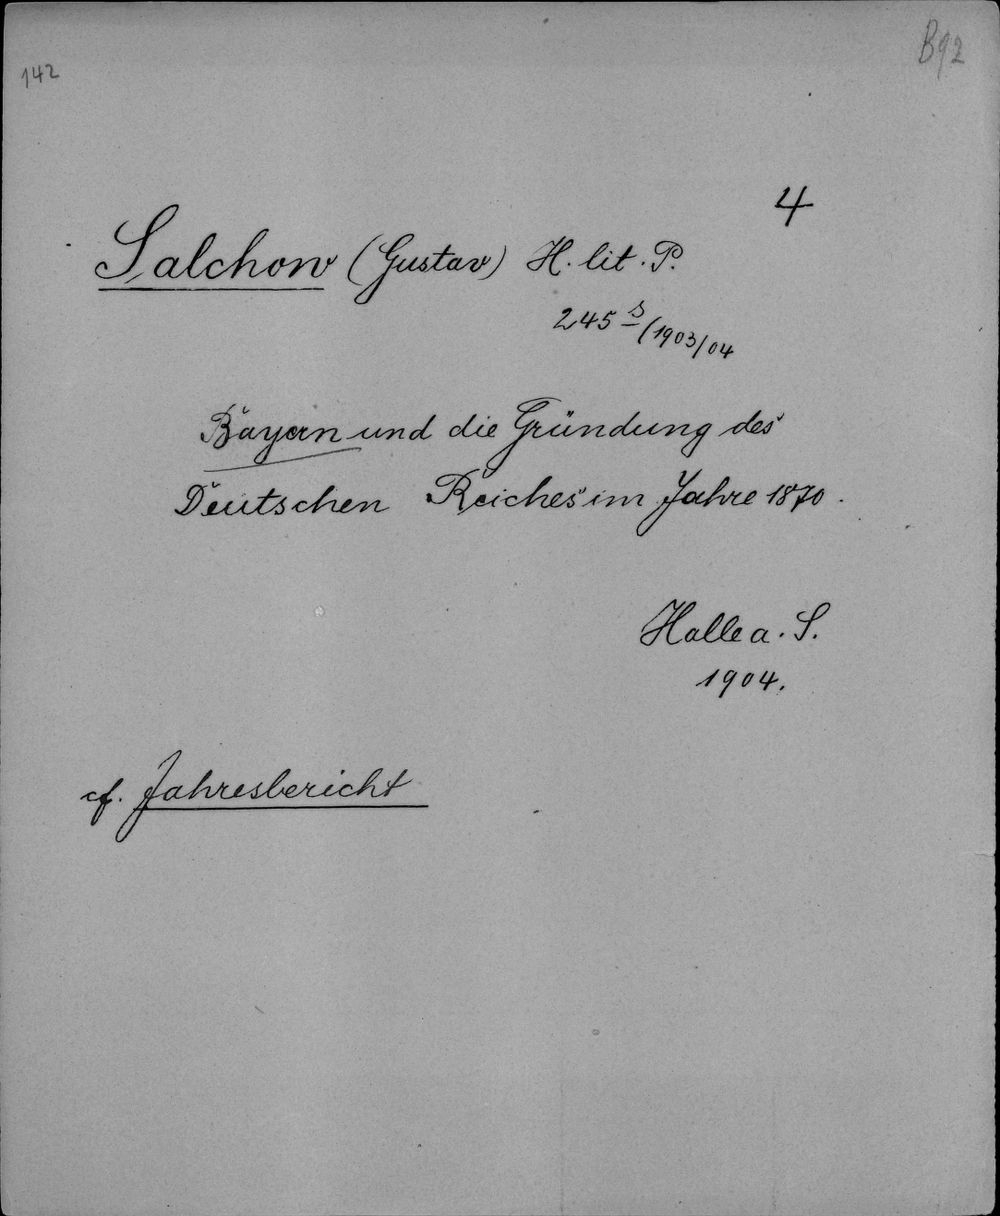 142
B92
4
Salchow (Gustav) H. lit. P.
245 s/1903/04
Bayern und die Gründung des
Deutschen Reiches im Jahre 1870.
Halle a. S.
1904.
cf. Jahresbericht